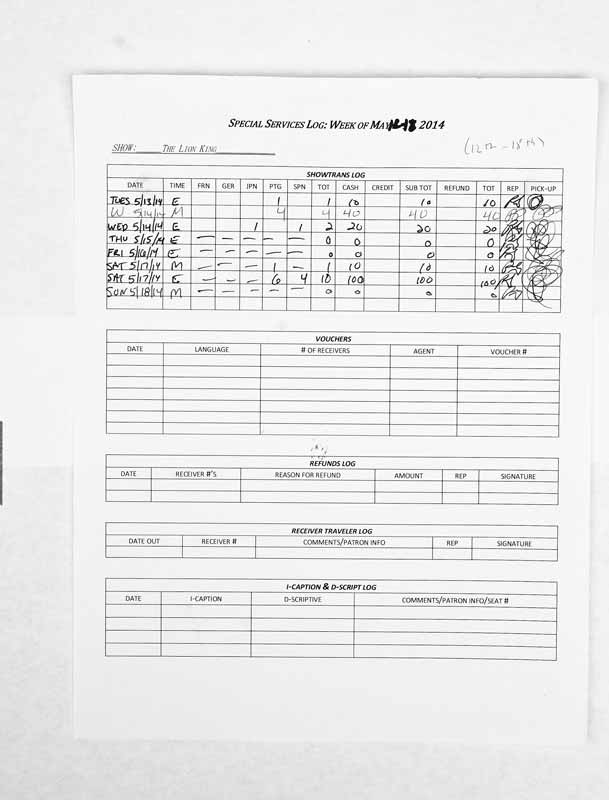 SPECIAL SERVICES LOG: WEEK OF MAY 12-18 2014
(12TH - 18TH)
SHOW: THE LION KING
SHOWTRANS LOG
DATE TIME FRN GER JPN PTG SPN TOT CASH CREDIT SUB TOT REFUND TOT REP PICK-UP
TUES 5/13/14 E 1 1 10 10 10
W 5/14/14 M 4 4 40 40 40
WED 5/14/14 E 1 1 2 20 20 20
THU 5/15/14 E — — — — — 0 0 0 0
FRI 5/16/14 E — — — — — 0 0 0 0
SAT 5/17/14 M — — — 1 — 1 10 10 10
SAT 5/17/14 E — — — 6 4 10 100 100 100
SUN 5/18/14 M — — — — — 0 0 0 0
VOUCHERS
DATE LANGUAGE # OF RECEIVERS AGENT VOUCHER #
REFUNDS LOG
DATE RECEIVER #'S REASON FOR REFUND AMOUNT REP SIGNATURE
RECEIVER TRAVELER LOG
DATE OUT RECEIVER # COMMENTS/PATRON INFO REP SIGNATURE
I-CAPTION & D-SCRIPT LOG
DATE I-CAPTION D-SCRIPTIVE COMMENTS/PATRON INFO/SEAT #